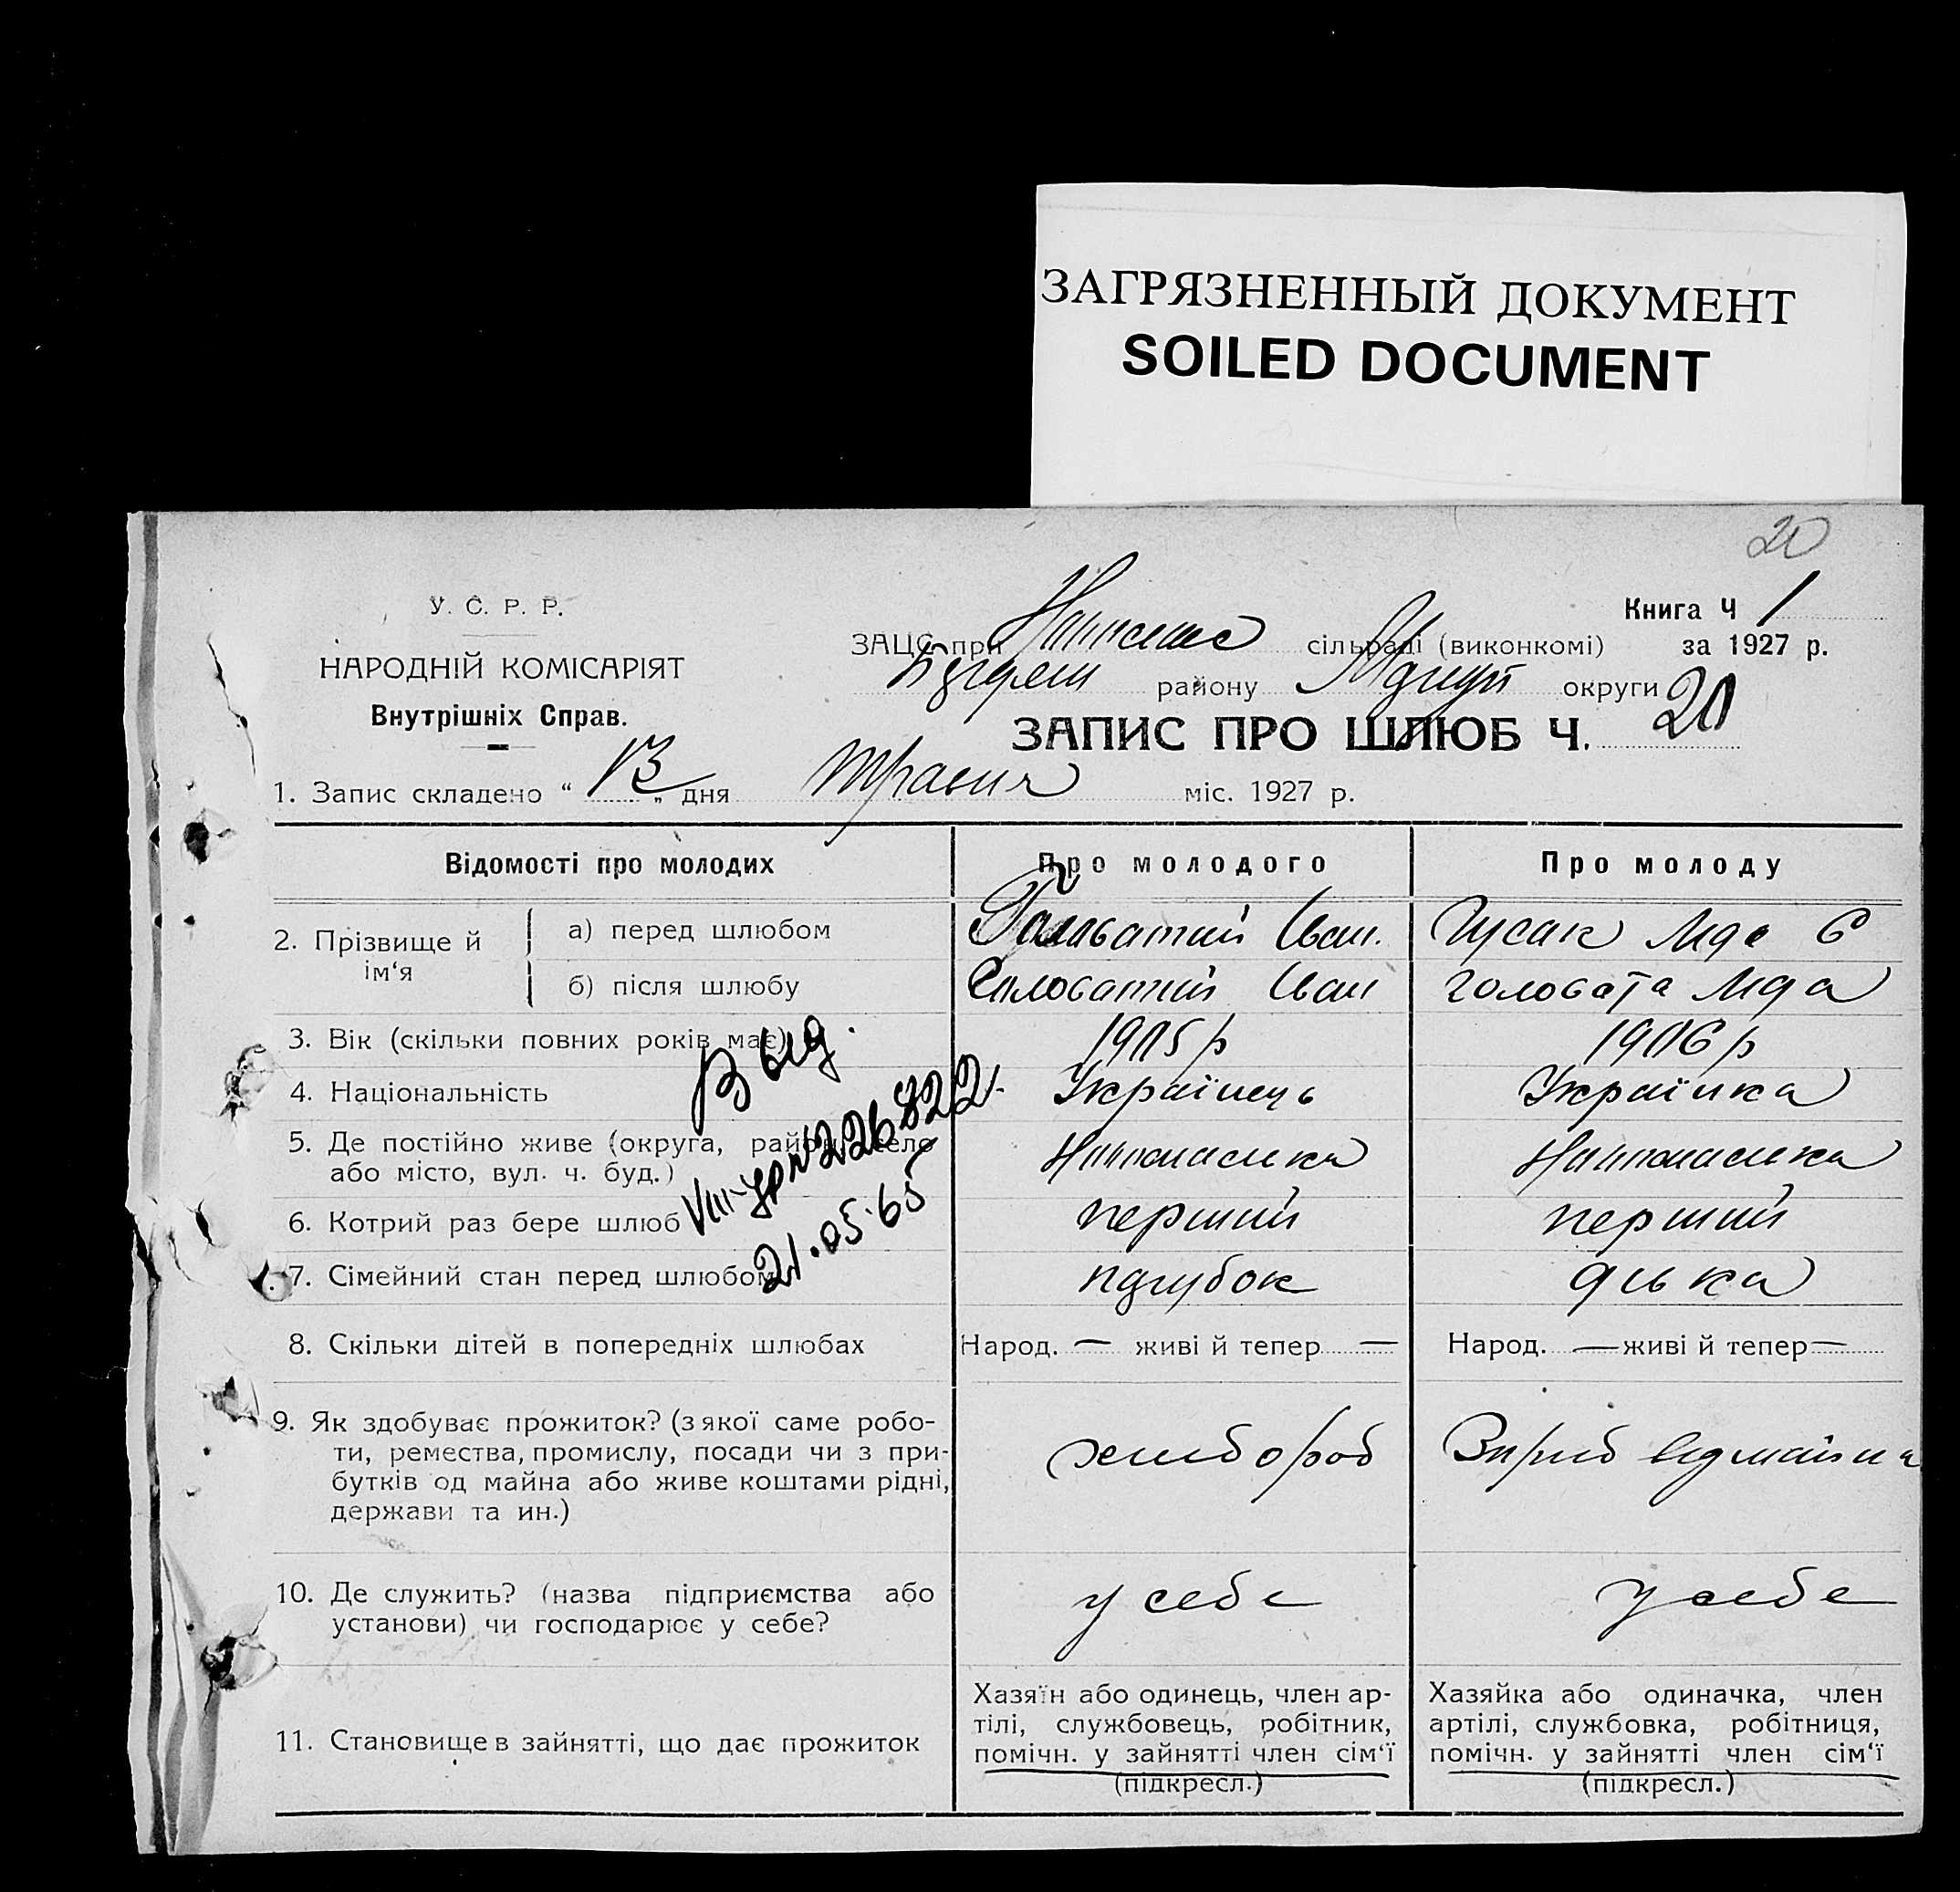 ЗАГРЯЗНЕННЫЙ ДОКУМЕНТ
SOILED DOCUMENT
20
У. С. Р. Р.
НАРОДНІЙ КОМІСАРІЯТ
Внутрішніх Справ.
Книга Ч 1
за 1927 р.
ЗАЦС при сільраді (виконкомі)
району округи
ЗАПИС ПРО ШЛЮБ Ч. 20
1. Запис складено “ 13 „ дня травня міс. 1927 р.
Відомості про молодих
Про молодого
Про молоду
2. Прізвище й ім‘я
а) перед шлюбом
Головатий Іван.
Гусак
б) після шлюбу
Головатий Іван
Головата
3. Вік (скільки повних років має)
1905 р
1906 р
4. Національність
Українець
Українка
5. Де постійно живе (округа, район, село
або місто, вул. ч. буд.)
6. Котрий раз бере шлюб
перший
перший
7. Сімейний стан перед шлюбом
парубок
дівка
Выд.
VIII-УР № 226822
21.05.65
8. Скільки дітей в попередніх шлюбах
Народ. — живі й тепер —
Народ. — живі й тепер —
9. Як здобуває прожиток? (з якої саме робо-
ти, ремества, промислу, посади чи з при-
бутків од майна або живе коштами рідні,
держави та ин.)
хлибороб
від майна
10. Де служить? (назва підприємства або
установи) чи господарює у себе?
у себе
у себе
11. Становище в зайнятті, що дає прожиток
Хазяїн або одинець, член ар-
тілі, службовець, робітник,
помічн. у зайнятті член сім‘ї
(підкресл.)
Хазяйка або одиначка, член
артілі, службовка, робітниця,
помічн. у зайнятті член сім‘ї
(підкресл.)